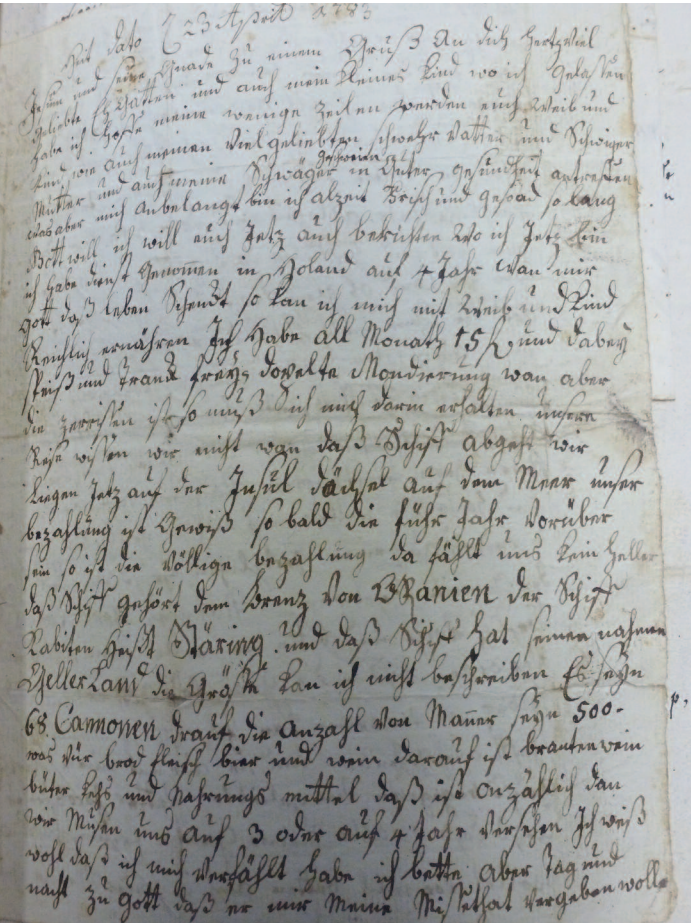 Seit dato d 23 April 1783
Jesum und seine Gnade zu einem Gruß an dich hertzviel
geliebte Eh gatten und auch mein kleines Kind wo ich gelassen
habe ich hoffe meine wenige zeilen werden euch Weib und
Kind wie auch meinen Vielgeliebten schwehr Vatter und Schwiger
Mutter und auch meine Schwäger in guter gesundheit antreffen
was aber mich anbelangt bin ich alzeit Frisch und gesund so lang
Gott will ich will euch Jetz auch berichten wo ich Jetz bin
ich habe dienst Genommen in Holand auf 4 Jahr wan mir
Gott daß leben Schenckt so kan ich mich mit Weib und Kind
Reichlich ernähren Ich habe all Monath 15 f und dabey
speiß und Tranck frey, dopelte Mondierung wan aber
die zerrissen ist so muß ich mich darin erhalten unsere
Reise wissen wir nicht wan daß Schiff abgeht wir
Liegen Jetz auf der Insul däcksel auf dem Meer unser
bezahlung ist Gewiß so bald die führ Jahr vorüber
sein so ist die völlige bezahlung da fählt uns kein heller
daß Schiff gehört dem Brenz von ORanien der Schiff
Kabiten heißt Stäring. und daß Schiff hat seinen nahmen
GellerLand die Größe kan ich nicht beschreiben Es seyn
68 Cannonen drauf die Anzahl von Mäner seyn 500-
was vür brod fleisch bier und wein darauf ist brantenwein
buter Kehs und Nahrungs mittel daß ist onzählich dan
wir Musen uns auf 3 oder auf 4 Jahr versehen Ich weiß
wohl daß ich mich verfählt habe ich bette aber Tag und
nacht zu Gott daß er mir Meine Missethat vergeben wolle